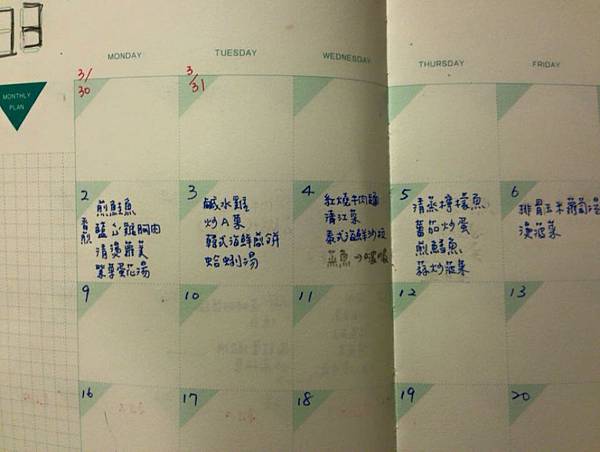 MONDAY
TUESDAY
WEDNESDAY
THURSDAY
FRIDAY
MONTHLY
PLAN
3/
30
3/
31
2
煎鮭魚
香煎鹽心雞胸肉
清燙蘿蔓
紫菜蛋花湯
3
鹹水雞
炒A菜
韓式海鮮煎餅
蛤蜊湯
4
紅燒牛肉麵
清江菜
泰式海鮮沙拉
5
清蒸檸檬魚
蕃茄炒蛋
煎鱈魚
蒜炒菠菜
6
排骨玉米蘿蔔湯
燙菠菜
9
10
11
12
13
16
17
18
19
20